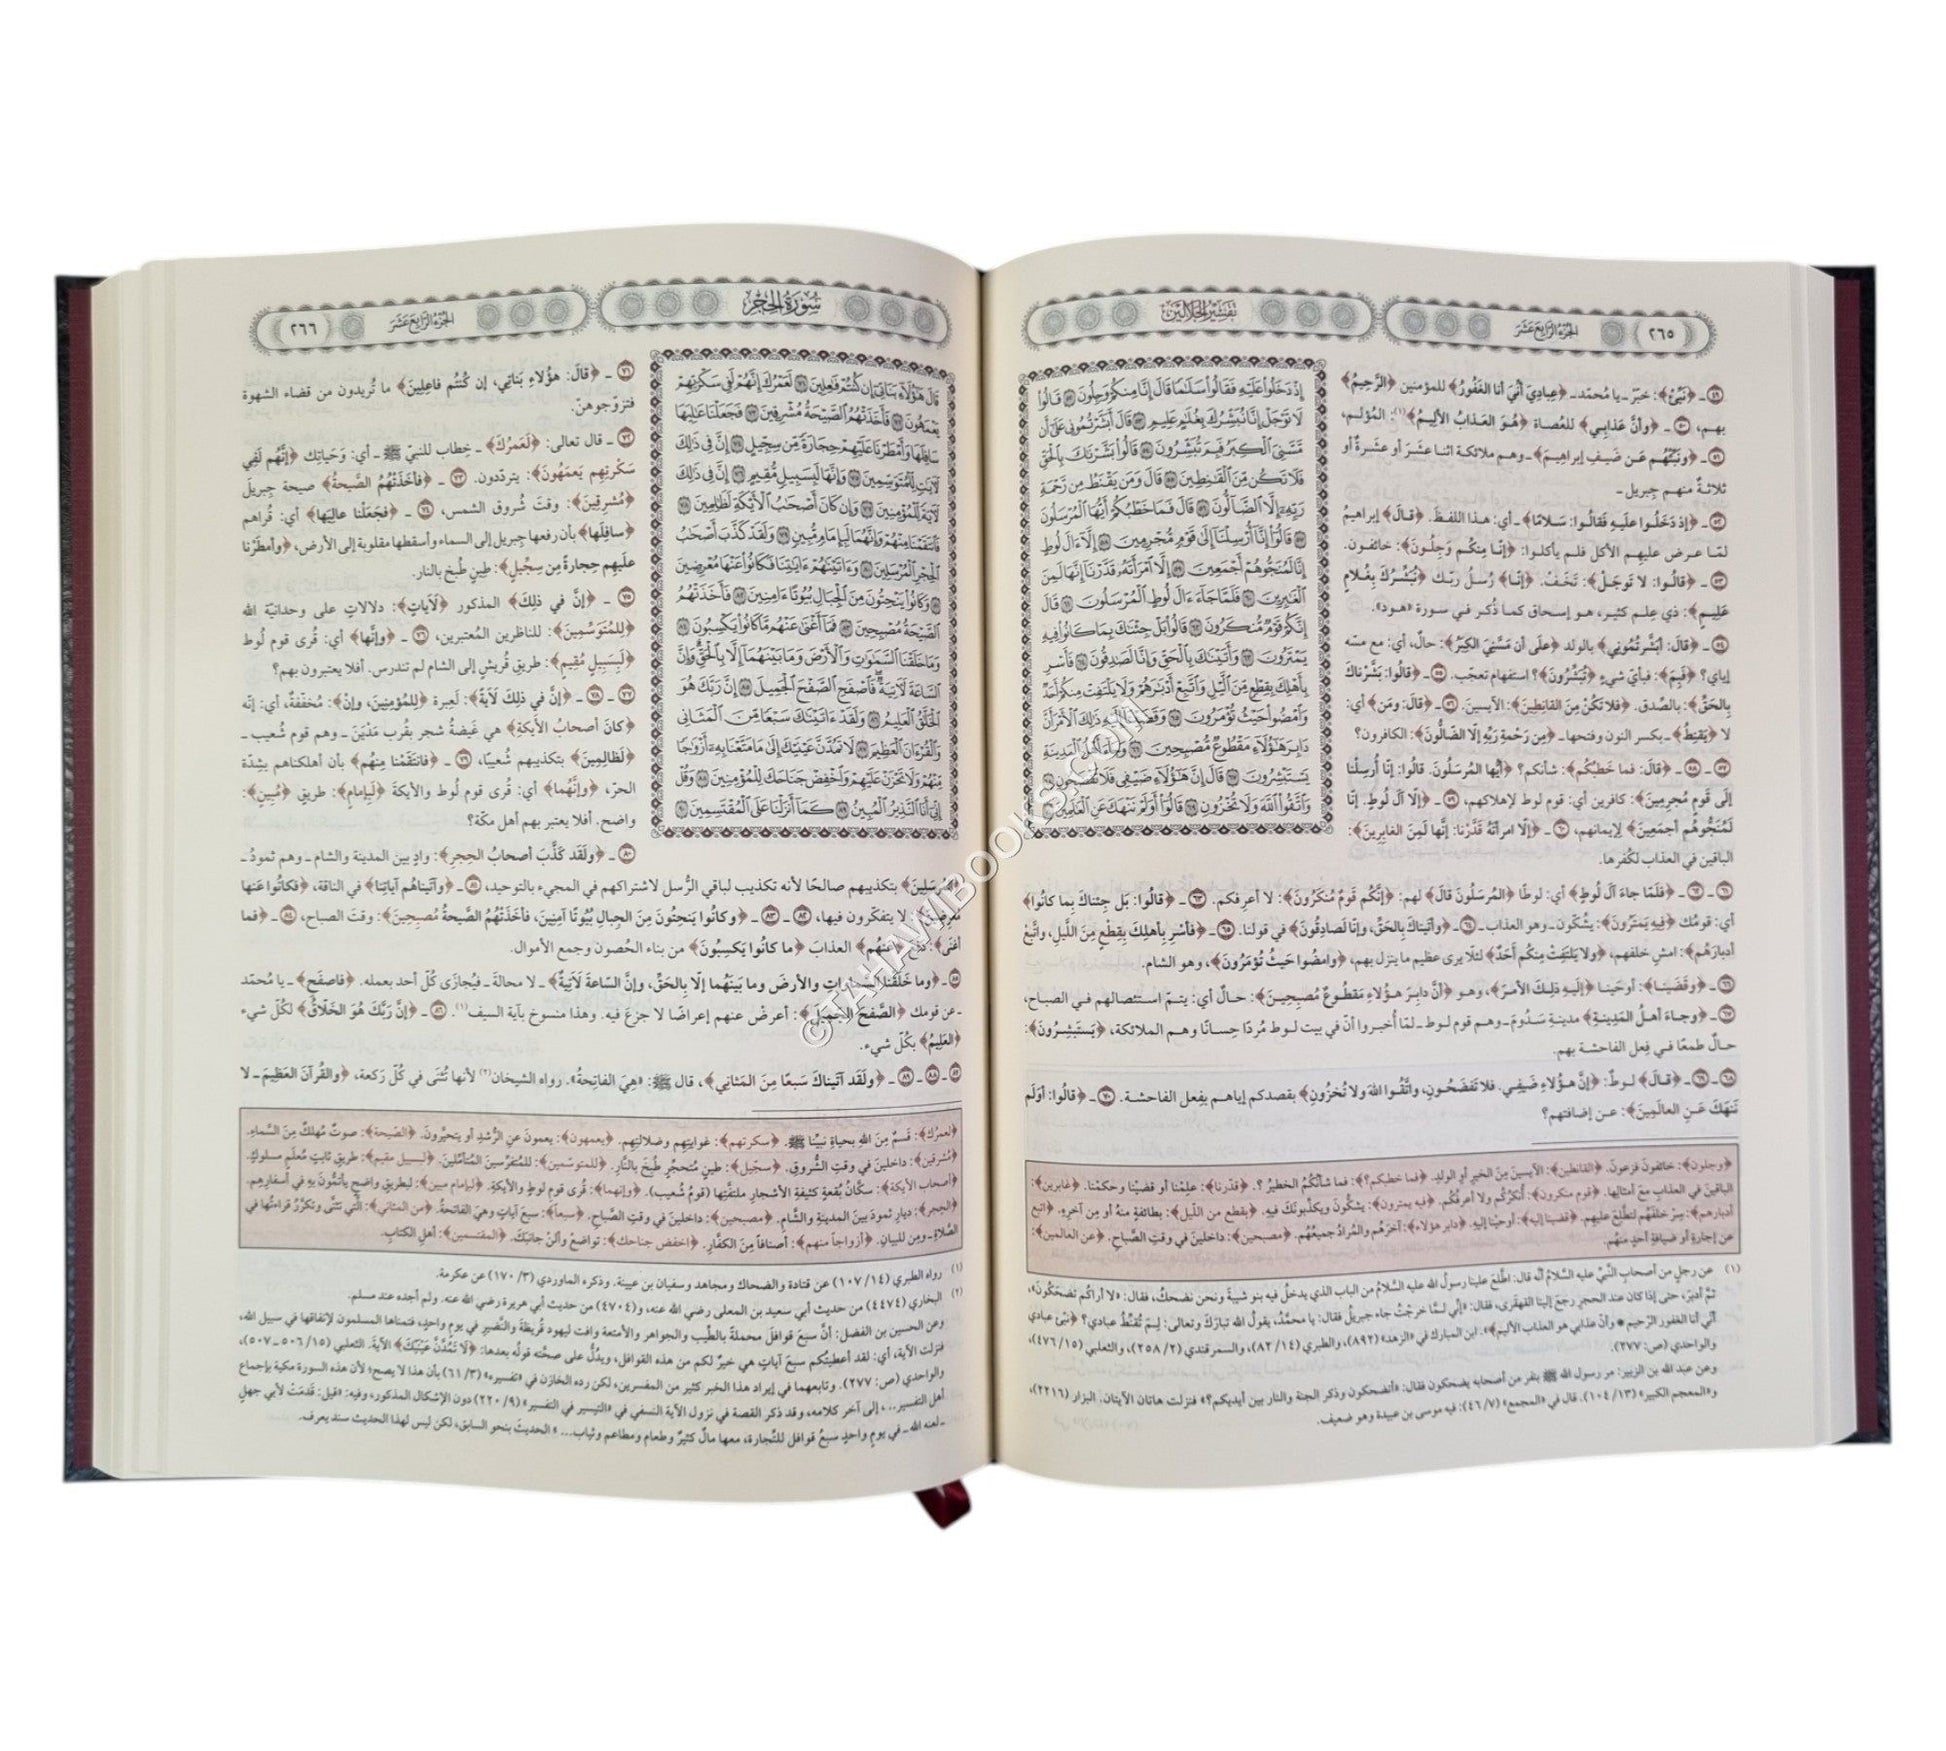 ٢٦٥
الجزء الرابع عشر
تفسير الجلالين
إِذْ دَخَلُوا عَلَيْهِ فَقَالُوا سَلَامًا قَالَ إِنَّا مِنكُمْ وَجِلُونَ ٥٢ قَالُوا
لَا تَوْجَلْ إِنَّا نُبَشِّرُكَ بِغُلَامٍ عَلِيمٍ ٥٣ قَالَ أَبَشَّرْتُمُونِي عَلَىٰ أَن
مَّسَّنِيَ الْكِبَرُ فَبِمَ تُبَشِّرُونَ ٥٤ قَالُوا بَشَّرْنَاكَ بِالْحَقِّ
فَلَا تَكُن مِّنَ الْقَانِطِينَ ٥٥ قَالَ وَمَن يَقْنَطُ مِن رَّحْمَةِ
رَبِّهِ إِلَّا الضَّالُّونَ ٥٦ قَالَ فَمَا خَطْبُكُمْ أَيُّهَا الْمُرْسَلُونَ
٥٧ قَالُوا إِنَّا أُرْسِلْنَا إِلَىٰ قَوْمٍ مُّجْرِمِينَ ٥٨ إِلَّا آلَ لُوطٍ
إِنَّا لَمُنَجُّوهُمْ أَجْمَعِينَ ٥٩ إِلَّا امْرَأَتَهُ قَدَّرْنَا إِنَّهَا لَمِنَ
الْغَابِرِينَ ٦٠ فَلَمَّا جَاءَ آلَ لُوطٍ الْمُرْسَلُونَ ٦١ قَالَ
إِنَّكُمْ قَوْمٌ مُّنكَرُونَ ٦٢ قَالُوا بَلْ جِئْنَاكَ بِمَا كَانُوا فِيهِ
يَمْتَرُونَ ٦٣ وَأَتَيْنَاكَ بِالْحَقِّ وَإِنَّا لَصَادِقُونَ ٦٤ فَأَسْرِ
بِأَهْلِكَ بِقِطْعٍ مِّنَ اللَّيْلِ وَاتَّبِعْ أَدْبَارَهُمْ وَلَا يَلْتَفِتْ مِنكُمْ أَحَدٌ
وَامْضُوا حَيْثُ تُؤْمَرُونَ ٦٥ وَقَضَيْنَا إِلَيْهِ ذَٰلِكَ الْأَمْرَ أَنَّ
دَابِرَ هَٰؤُلَاءِ مَقْطُوعٌ مُّصْبِحِينَ ٦٦ وَجَاءَ أَهْلُ الْمَدِينَةِ
يَسْتَبْشِرُونَ ٦٧ قَالَ إِنَّ هَٰؤُلَاءِ ضَيْفِي فَلَا تَفْضَحُونِ ٦٨
وَاتَّقُوا اللَّهَ وَلَا تُخْزُونِ ٦٩ قَالُوا أَوَلَمْ نَنْهَكَ عَنِ الْعَالَمِينَ ٧٠
٤٩ ـ ﴿نَبِّئْ﴾: خبّر ـ يا مُحمّد ـ ﴿عِبادِي أنّي أنا الغَفُورُ﴾ للمؤمنين ﴿الرَّحِيمُ﴾
بهم، ٥٠ ـ ﴿وأنَّ عَذابِي﴾ للعُصاة ﴿هُوَ العَذابُ الألِيمُ﴾(١): المُؤلم،
٥١ ـ ﴿ونَبِّئْهُم عَن ضَيفِ إبراهِيمَ﴾ ـ وهم ملائكة اثنا عشَرَ أو عشَرةٌ أو
ثلاثةٌ منهم جِبريل ـ
٥٢ ـ ﴿إذ دَخَلُوا علَيهِ فَقالُوا: سَلامًا﴾ ـ أي: هذا اللفظَ. ﴿قالَ﴾ إبراهيمُ
لمّا عرض عليهم الأكل فلم يأكلوا: ﴿إنّا مِنكُم وَجِلُونَ﴾: خائفون.
٥٣ ـ ﴿قالُوا: لا تَوجَلْ﴾: تَخَفْ. ﴿إنّا﴾ رُسلُ ربّك ﴿نُبَشِّرُكَ بِغُلامٍ
عَلِيمٍ﴾: ذي عِلم كثير، هو إسحاق كما ذُكر في سورة «هود».
٥٤ ـ ﴿قالَ: أبَشَّرتُمُوني﴾ بالولد ﴿علَى أن مَسَّنِيَ الكِبَرُ﴾: حالٌ، أي: مع مسّه
إياي؟ ﴿فَبِمَ﴾: فبأيّ شيءٍ ﴿تُبَشِّرُونَ﴾؟ استفهام تعجّب. ٥٥ ـ ﴿قالُوا: بَشَّرناكَ
بِالحَقِّ﴾: بالصّدق. ﴿فلا تَكُنْ مِنَ القانِطِينَ﴾: الآيسين. ٥٦ ـ ﴿قالَ: ومَن﴾ أي:
لا ﴿يَقنِطُ﴾ ـ بكسر النون وفتحها ـ ﴿مِن رَحْمةِ رَبِّهِ إلّا الضّالُّونَ﴾: الكافرون؟
٥٧ ـ ٥٨ ـ ﴿قالَ: فما خَطبُكُم﴾: شأنكم؟ ﴿أيُّها المُرسَلُونَ. قالُوا: إنّا أُرسِلْنا
إلَى قَومٍ مُجرِمِينَ﴾: كافرين أي: قوم لوط لإهلاكهم، ٥٩ ـ ﴿إلّا آلَ لُوطٍ. إنّا
لَمُنَجُّوهُم أجمَعِينَ﴾ لإيمانهم، ٦٠ ـ ﴿إلّا امرأتَهُ قَدَّرْنا: إنَّها لَمِنَ الغابِرِينَ﴾:
الباقين في العذاب لكُفرها.
٦١ ـ ٦٢ ـ ﴿فلَمّا جاءَ آلَ لُوطٍ﴾ أي: لوطًا ﴿المُرسَلُونَ قالَ﴾ لهم: ﴿إنَّكُم قَومٌ مُنكَرُونَ﴾: لا أعرفكم. ٦٣ ـ ﴿قالُوا: بَل جِئناكَ بِما كانُوا﴾
أي: قومُك ﴿فِيهِ يَمتَرُونَ﴾: يشُكّون ـ وهو العذاب ـ ٦٤ ـ ﴿وأتَيناكَ بِالحَقِّ، وإنّا لَصادِقُونَ﴾ في قولنا. ٦٥ ـ ﴿فأَسْرِ بِأهلِكَ بِقِطْعٍ مِنَ اللَّيلِ، واتَّبِعْ
أدبارَهُم﴾: امشِ خلفهم، ﴿ولا يَلتَفِتْ مِنكُم أحَدٌ﴾ لئلّا يرى عظيم ما ينزل بهم، ﴿وامضُوا حَيثُ تُؤمَرُونَ﴾، وهو الشام.
٦٦ ـ ﴿وقَضَينا﴾: أوحَينا ﴿إلَيهِ ذلِكَ الأمرَ﴾، وهو ﴿أنَّ دابِرَ هٰؤُلاءِ مَقطُوعٌ مُصبِحِينَ﴾: حال أي: يتمّ استئصالهم في الصباح،
٦٧ ـ ﴿وجاءَ أهلُ المَدِينةِ﴾ مدينةِ سَدُومَ ـ وهم قوم لوط ـ لمّا أُخبروا أنّ في بيت لوط مُردًا حِسانًا وهم الملائكة، ﴿يَستَبشِرُونَ﴾:
حالٌ طمعًا في فِعل الفاحشة بهم.
٦٨ ـ ٦٩ ـ ﴿قالَ﴾ لوطٌ: ﴿إنَّ هٰؤُلاءِ ضَيفِي. فلا تَفضَحُونِ، واتَّقُوا اللهَ ولا تُخزُونِ﴾ بقصدكم إياهم بفعل الفاحشة. ٧٠ ـ ﴿قالُوا: أوَلَم
نَنهَكَ عَنِ العالَمِينَ﴾: عن إضافتهم؟
﴿وجلون﴾: خائفون فزعون. ﴿القانطين﴾: الآيسين من الخيرِ أو الولدِ. ﴿فما خطبكم﴾؟: فما شأنُكُمُ الخطيرُ؟. ﴿قدّرنا﴾: علِمْنا أو قضيْنا وحكمْنا. ﴿غابرين﴾:
الباقين في العذابِ معَ أمثالِها. ﴿قوم منكرون﴾: أُنكرُكُم ولا أعرِفُكم. ﴿فيه يمترون﴾: يشكُّونَ ويكذّبونَكَ فيهِ. ﴿بقطع من الليل﴾: بطائفةٍ منهُ أو من آخرِهِ. ﴿اتبع
أدبارهم﴾: سِرْ خلفَهُم لتطّلعَ عليهِم. ﴿قضينا إليه﴾: أوحيْنا إليهِ. ﴿دابر هؤلاء﴾: آخرَهُم والمُرادُ جميعُهُم. ﴿مصبحين﴾: داخلينَ في وقتِ الصَّباحِ. ﴿عن العالمين﴾:
عن إجارةِ أو ضيافةِ أحدٍ منهُم.
(١) عن رجل من أصحابِ النَّبيِّ عليه السَّلامُ أنَّه قال: اطَّلعَ علينا رسولُ الله عليه السَّلامُ من الباب الذي يدخلُ فيه بنو شيبةَ ونحن نضحكُ، فقال: «لا أراكُم تضحَكُونَ»،
ثمَّ أدبرَ، حتى إذا كان عند الحجرِ رجعَ إلينا القهقَرى، فقال: «إنِّي لمَّا خرجْتُ جاء جبريلُ فقال: يا محمَّدُ، يقولُ الله تباركَ وتعالى: لِمَ تُقنِّطُ عبادي؟ ﴿نبّئ عبادي
أنّي أنا الغفور الرّحيم * وأنّ عذابي هو العذاب الأليم﴾». ابن المبارك في «الزهد» (٨٩٢)، والطبري (١٤/ ٨٢)، والسمرقندي (٢/ ٢٥٨)، والثعلبي (١٥/ ٤٧٦)،
والواحدي (ص: ٢٧٧).
وعن عبد الله بن الزبير: مر رسول الله ﷺ بنفر من أصحابه يضحكون فقال: «أتضحكون وذكر الجنة والنار بين أيديكم؟» فنزلت هاتان الآيتان. البزار (٢٢١٦)،
و«المعجم الكبير» (١٣/ ١٠٤). قال في «المجمع» (٧/ ٤٦): فيه موسى بن عبيدة وهو ضعيف.
سورة الحجر
الجزء الرابع عشر
٢٦٦
قَالَ هَٰؤُلَاءِ بَنَاتِي إِن كُنتُمْ فَاعِلِينَ ٧١ لَعَمْرُكَ إِنَّهُمْ لَفِي سَكْرَتِهِمْ
يَعْمَهُونَ ٧٢ فَأَخَذَتْهُمُ الصَّيْحَةُ مُشْرِقِينَ ٧٣ فَجَعَلْنَا عَالِيَهَا
سَافِلَهَا وَأَمْطَرْنَا عَلَيْهِمْ حِجَارَةً مِّن سِجِّيلٍ ٧٤ إِنَّ فِي ذَٰلِكَ
لَآيَاتٍ لِّلْمُتَوَسِّمِينَ ٧٥ وَإِنَّهَا لَبِسَبِيلٍ مُّقِيمٍ ٧٦ إِنَّ فِي ذَٰلِكَ
لَآيَةً لِّلْمُؤْمِنِينَ ٧٧ وَإِن كَانَ أَصْحَابُ الْأَيْكَةِ لَظَالِمِينَ ٧٨
فَانتَقَمْنَا مِنْهُمْ وَإِنَّهُمَا لَبِإِمَامٍ مُّبِينٍ ٧٩ وَلَقَدْ كَذَّبَ أَصْحَابُ
الْحِجْرِ الْمُرْسَلِينَ ٨٠ وَآتَيْنَاهُمْ آيَاتِنَا فَكَانُوا عَنْهَا مُعْرِضِينَ
٨١ وَكَانُوا يَنْحِتُونَ مِنَ الْجِبَالِ بُيُوتًا آمِنِينَ ٨٢ فَأَخَذَتْهُمُ
الصَّيْحَةُ مُصْبِحِينَ ٨٣ فَمَا أَغْنَىٰ عَنْهُم مَّا كَانُوا يَكْسِبُونَ ٨٤
وَمَا خَلَقْنَا السَّمَاوَاتِ وَالْأَرْضَ وَمَا بَيْنَهُمَا إِلَّا بِالْحَقِّ وَإِنَّ
السَّاعَةَ لَآتِيَةٌ فَاصْفَحِ الصَّفْحَ الْجَمِيلَ ٨٥ إِنَّ رَبَّكَ هُوَ
الْخَلَّاقُ الْعَلِيمُ ٨٦ وَلَقَدْ آتَيْنَاكَ سَبْعًا مِّنَ الْمَثَانِي
وَالْقُرْآنَ الْعَظِيمَ ٨٧ لَا تَمُدَّنَّ عَيْنَيْكَ إِلَىٰ مَا مَتَّعْنَا بِهِ أَزْوَاجًا
مِّنْهُمْ وَلَا تَحْزَنْ عَلَيْهِمْ وَاخْفِضْ جَنَاحَكَ لِلْمُؤْمِنِينَ ٨٨ وَقُلْ
إِنِّي أَنَا النَّذِيرُ الْمُبِينُ ٨٩ كَمَا أَنزَلْنَا عَلَى الْمُقْتَسِمِينَ ٩٠
٧١ ـ ﴿قالَ: هٰؤُلاءِ بَناتِي، إن كُنتُم فاعِلِينَ﴾ ما تُريدون من قضاء الشهوة
فتزوّجوهنّ.
٧٢ ـ قال تعالى: ﴿لَعَمرُكَ﴾ ـ خِطاب للنبيّ ﷺ ـ أي: وَحَياتِك ﴿إنَّهُم لَفِي
سَكْرتِهِم يَعمَهُونَ﴾: يتردّدون. ٧٣ ـ ﴿فأخَذَتْهُمُ الصَّيحةُ﴾ صيحة جِبريلَ
﴿مُشرِقِينَ﴾: وقتَ شُروق الشمس، ٧٤ ـ ﴿فجَعَلْنا عالِيَها﴾ أي: قُراهم
﴿سافِلَها﴾ بأن رفعها جِبريل إلى السماء وأسقطها مقلوبة إلى الأرض، ﴿وأمطَرْنا
علَيهِم حِجارةً مِن سِجِّيلٍ﴾: طِينٍ طُبخ بالنار.
٧٥ ـ ﴿إنَّ في ذلِكَ﴾ المذكور ﴿لَآياتٍ﴾: دلالاتٍ على وحدانيّة الله
﴿لِلمُتَوَسِّمِينَ﴾: للناظرين المُعتبرين، ٧٦ ـ ﴿وإنَّها﴾ أي: قُرى قوم لُوط
﴿لَبِسَبِيلٍ مُقِيمٍ﴾: طريقِ قُريش إلى الشام لم تندرس. أفلا يعتبرون بهم؟
٧٧ ـ ٧٨ ـ ﴿إنَّ في ذلِكَ لَآيةً﴾: لَعِبرة ﴿لِلمُؤمِنِينَ، وإنْ﴾: مُخفّفةٌ، أي: إنّه
﴿كانَ أصحابُ الأيكةِ﴾ هي غَيضةُ شجر بقُرب مَدْيَنَ ـ وهم قوم شُعيب ـ
﴿لَظالِمِينَ﴾ بتكذيبهم شُعيبًا، ٧٩ ـ ﴿فانتَقَمْنا مِنهُم﴾ بأن أهلكناهم بشِدّة
الحرّ، ﴿وإنَّهُما﴾ أي: قُرى قوم لُوط والأيكةَ ﴿لَبِإمامٍ﴾: طريقٍ ﴿مُبِينٍ﴾:
واضح. أفلا يعتبر بهم أهل مكّة؟
٨٠ ـ ﴿ولَقَد كَذَّبَ أصحابُ الحِجرِ﴾: وادٍ بين المدينة والشام ـ وهم ثمودُ ـ
﴿المُرسَلِينَ﴾ بتكذيبهم صالحًا لأنه تكذيب لباقي الرُّسل لاشتراكهم في المجيء بالتوحيد، ٨١ ـ ﴿وآتَيناهُم آياتِنا﴾ في الناقة، ﴿فكانُوا عَنها
مُعرِضِينَ﴾: لا يتفكّرون فيها، ٨٢ ـ ٨٣ ـ ﴿وكانُوا يَنحِتُونَ مِنَ الجِبالِ بُيُوتًا آمِنِينَ، فأخَذَتْهُمُ الصَّيحةُ مُصبِحِينَ﴾: وقتَ الصباح، ٨٤ ـ ﴿فما
أغنَى﴾: دفع ﴿عَنهُم﴾ العذابَ ﴿ما كانُوا يَكسِبُونَ﴾ من بناء الحُصون وجمع الأموال.
٨٥ ـ ﴿وما خَلَقْنا السَّماواتِ والأرضَ وما بَينَهُما إلّا بِالحَقِّ، وإنَّ السّاعةَ لَآتِيةٌ﴾ ـ لا محالة ـ فيُجازَى كُلّ أحد بعمله. ﴿فاصفَحِ﴾ ـ يا مُحمّد
ـ عن قومك ﴿الصَّفحَ الجَمِيلَ﴾: أعرضْ عنهم إعراضًا لا جزعَ فيه. وهذا منسوخ بآية السيف(١). ٨٦ ـ ﴿إنَّ رَبَّكَ هُوَ الخَلّاقُ﴾ لكُلّ شيء
﴿العَلِيمُ﴾ بكُلّ شيء.
٨٧ ـ ٨٨ ـ ٨٩ ـ ﴿ولَقَد آتَيناكَ سَبعًا مِنَ المَثانِي﴾، قال ﷺ: «هِيَ الفاتِحةُ». رواه الشيخان(٢) لأنها تُثنى في كُلّ ركعة، ﴿والقُرآنَ العَظِيمَ ـ لا
﴿لعمرك﴾: قَسمٌ مِنَ اللهِ بحياةِ نبيِّنا ﷺ. ﴿سكرتهم﴾: غوايتِهم وضلالتِهِم. ﴿يعمهون﴾: يعمونَ عنِ الرُّشدِ أو يتحيَّرونَ. ﴿الصّيحة﴾: صوتٌ مُهلكٌ مِنَ السَّماءِ.
﴿مُشرقين﴾: داخلينَ في وقتِ الشُّروقِ. ﴿سجّيل﴾: طينٍ مُتحجِّرٍ طُبخَ بالنَّارِ. ﴿للمتوسّمين﴾: للمُتفرِّسينَ المُتأمِّلينَ. ﴿لبسبيل مقيم﴾: طريقٍ ثابتٍ مُعلَمٍ مسلوكٍ.
﴿أصحاب الأيكة﴾: سكَّانُ بُقعةٍ كثيفةِ الأشجارِ ملتفَّتِها (قومُ شُعيب). ﴿وإنهما﴾: قُرى قومِ لوطٍ والأيكةِ. ﴿لبإمام مبين﴾: لبطريقٍ واضحٍ يأتمُّونَ بهِ في أسفارِهِم.
﴿الحِجر﴾: ديارِ ثمودَ بينَ المدينةِ والشَّام. ﴿مصبحين﴾: داخلينَ في وقتِ الصَّباحِ. ﴿سبعاً﴾: سبعَ آياتٍ وهيَ الفاتحةُ. ﴿من المثاني﴾: الَّتي تثنَّى وتكرَّرُ قراءتُها في
الصَّلاةِ ـ ومِن للبيانِ. ﴿أزواجاً منهم﴾: أصنافاً مِنَ الكفَّارِ. ﴿اخفض جناحك﴾: تواضعْ وألِنْ جانبَكَ. ﴿المقتسمين﴾: أهلِ الكتابِ.
(١) رواه الطبري (١٤/ ١٠٧) عن قتادة والضحاك ومجاهد وسفيان بن عيينة. وذكره الماوردي (٣/ ١٧٠) عن عكرمة.
(٢) البخاري (٤٤٧٤) من حديث أبي سعيد بن المعلى رضي الله عنه، و(٤٧٠٤) من حديث أبي هريرة رضي الله عنه. ولم أجده عند مسلم.
وعن الحسين بن الفضل: أنَّ سبعَ قوافلَ محملةً بالطِّيب والجواهر والأمتعة وافت ليهود قُريظةَ والنَّضيرِ في يومٍ واحدٍ، فتمناها المسلمون لإنفاقها في سبيل الله،
فنزلت الآية، أي: لقد أعطيتُكم سبعَ آياتٍ هي خيرٌ لكم من هذه القوافل، ويدُلُّ على صحّته قولُه بعدها: ﴿لَا تَمُدَّنَّ عَيْنَيْكَ﴾ الآيةَ. الثعلبي (١٥/ ٥٠٦ ـ ٥٠٧)،
والواحدي (ص: ٢٧٧). وتابعهما في إيراد هذا الخبر كثير من المفسرين، لكن رده الخازن في «تفسيره» (٣/ ٦١) بأن هذا لا يصح؛ لأن هذه السورة مكية بإجماع
أهل التفسير..، إلى آخر كلامه، وقد ذكر القصة في نزول الآية النسفي في «التيسير في التفسير» (٩/ ٢٢٠) دون الإشكال المذكور، وفيه: «قيل: قَدمَتْ لأبي جهلٍ
ـ لعنه الله ـ في يومٍ واحدٍ سبعُ قوافل للتِّجارة، معها مالٌ كثيرٌ وطعام ومطاعم وثياب... » الحديث بنحو السابق، لكن ليس لهذا الحديث سند يعرف.
©TAHAWIBOOKS.COM